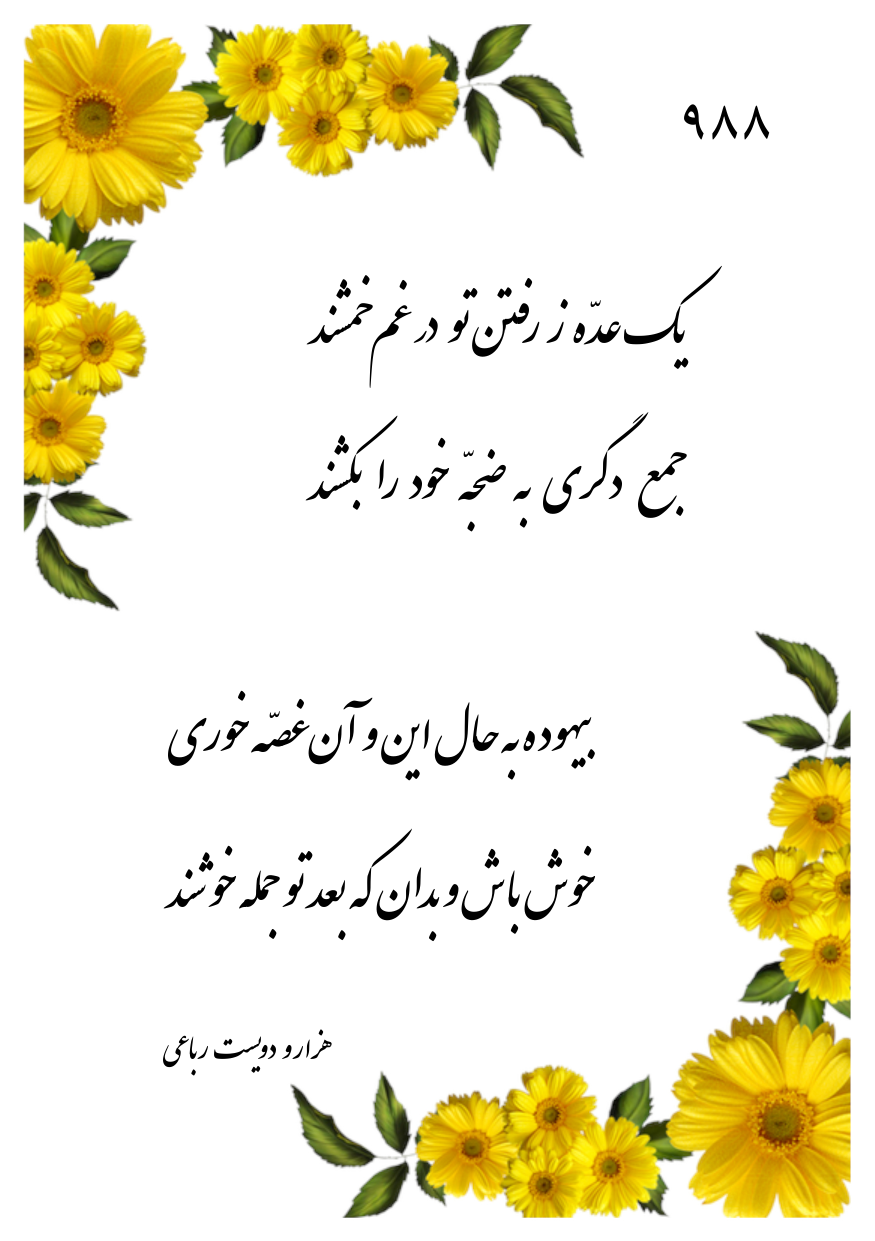 ۹۸۸
یک عدّه ز رفتن تو در غم خمشند
جمع دگری به ضجّه خود را بکشند
بیهوده به حال این و آن غصّه خوری
خوش باش و بدان که بعد تو جمله خوشند
هزار و دویست رباعی